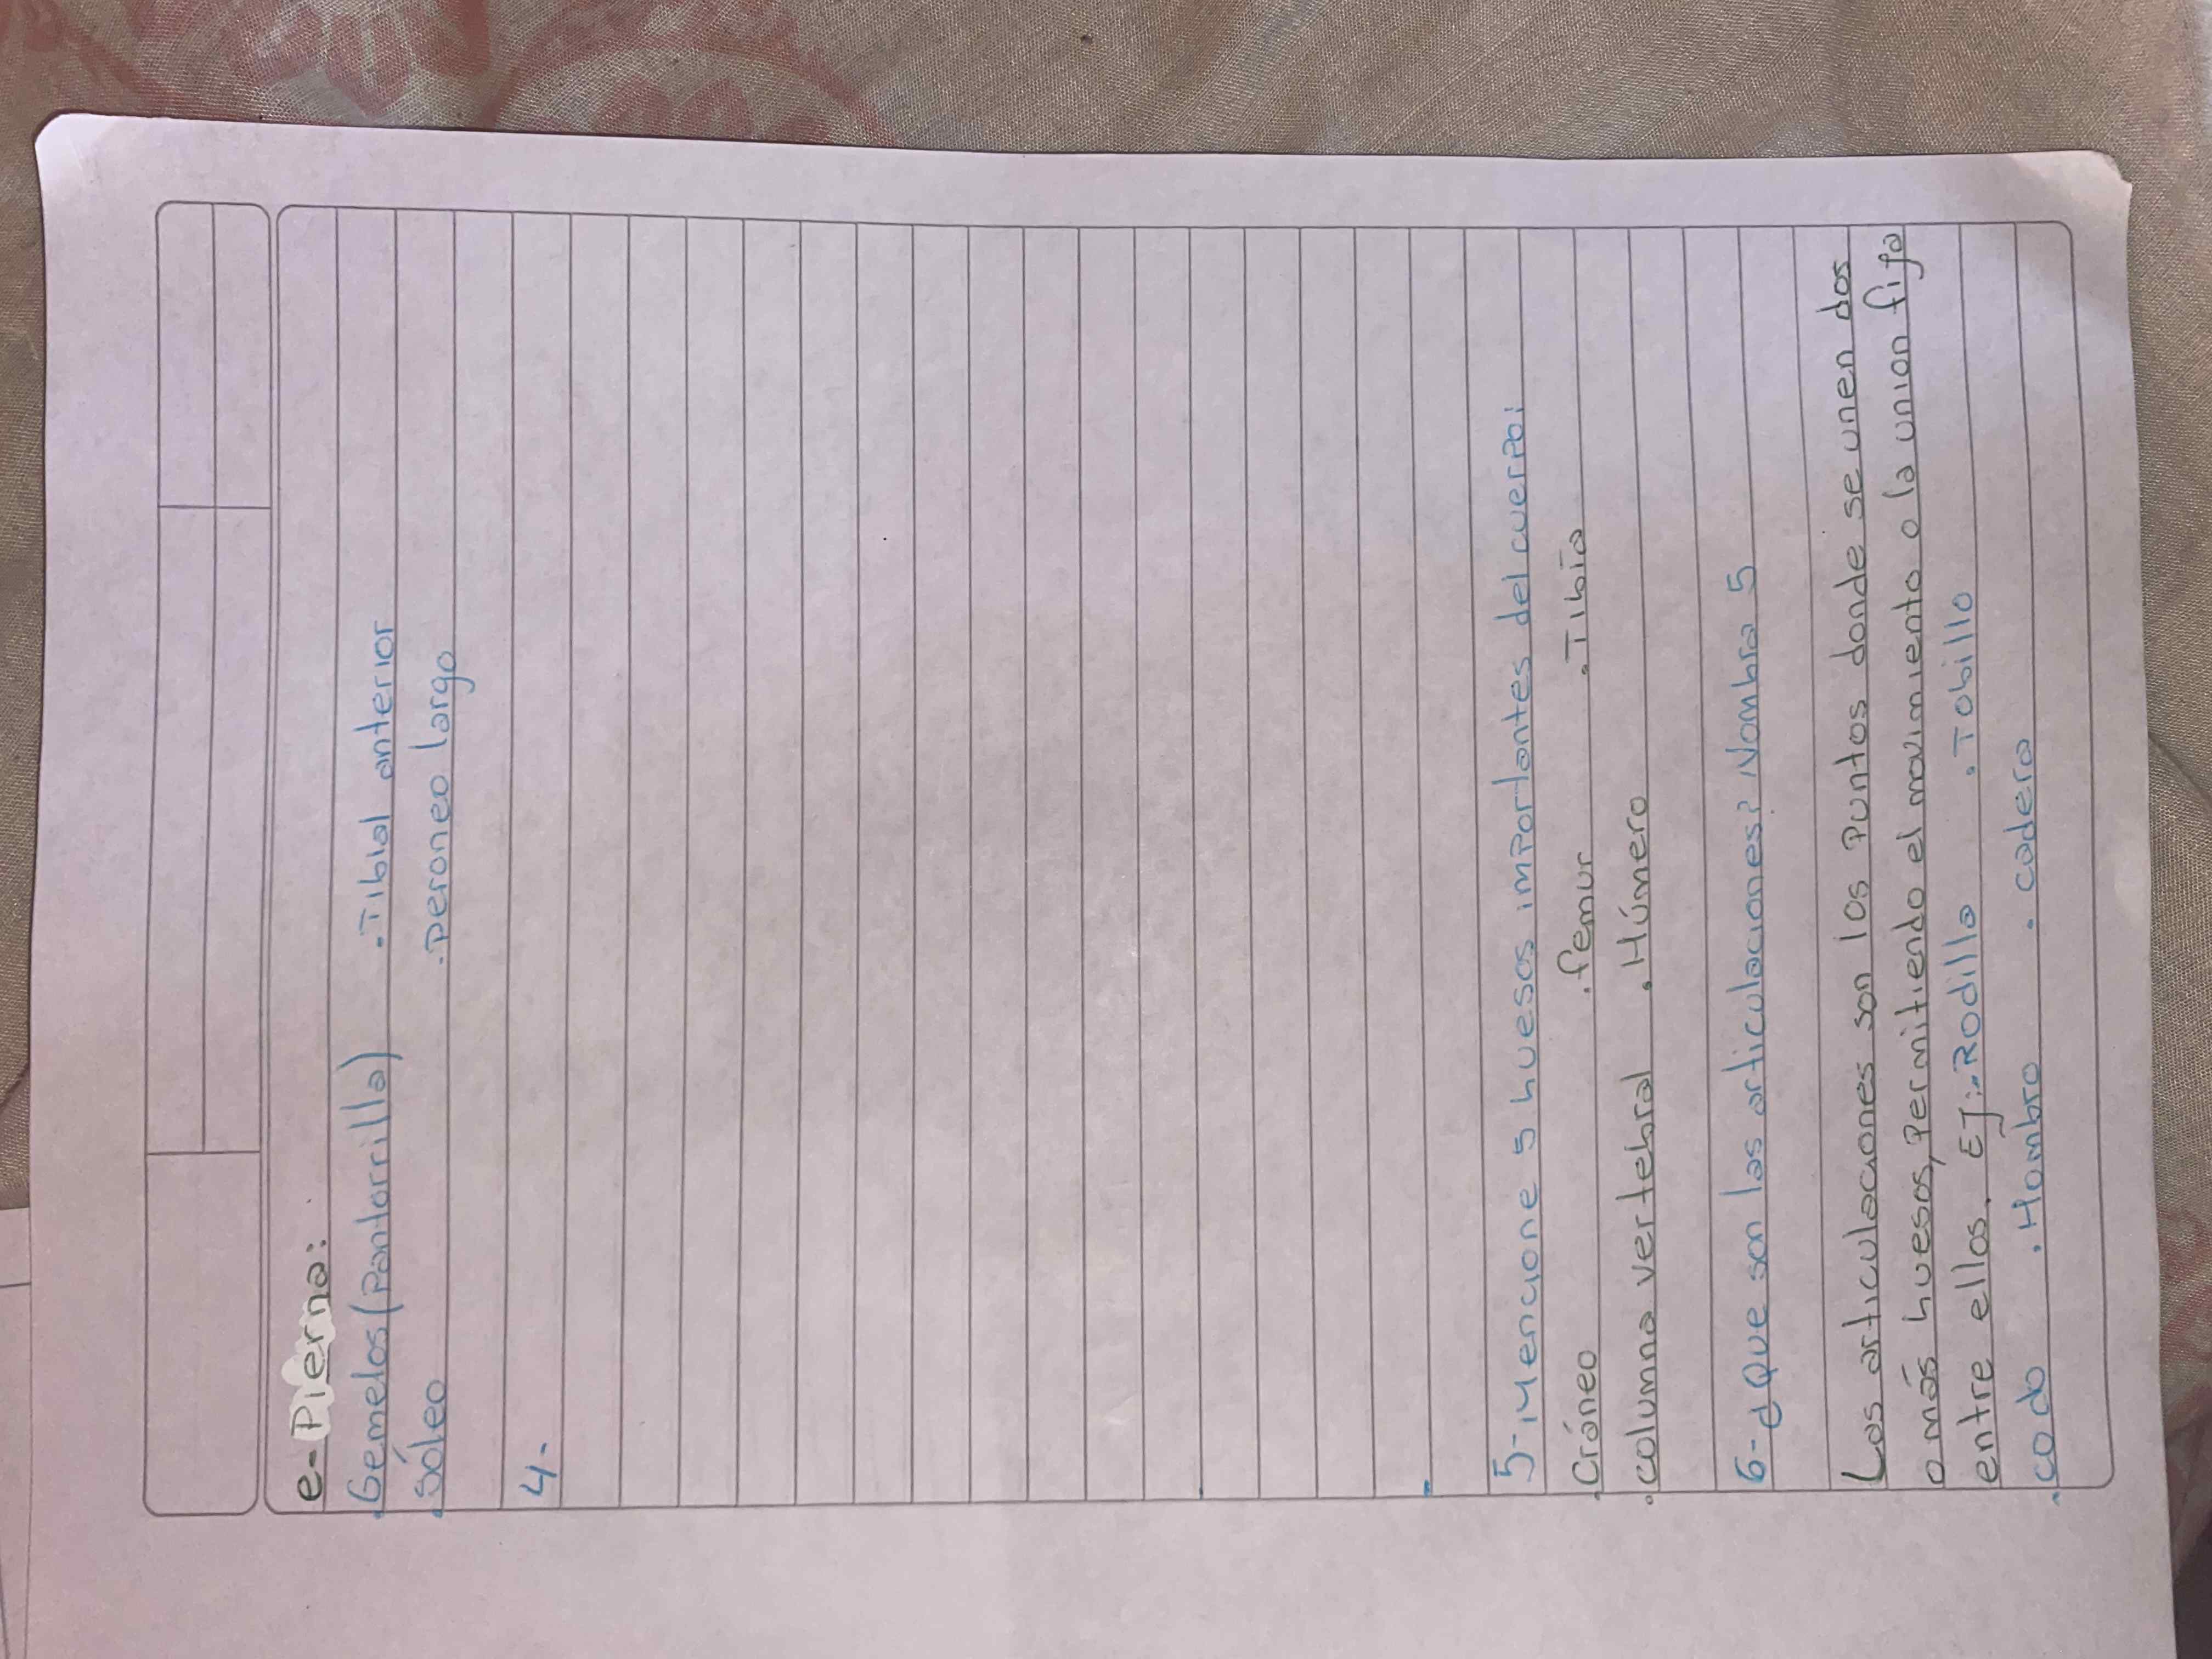 e-Pierna:
.Gemelos(Pantorrilla) .Tibial anterior
.Sóleo .Peroneo largo
4-
5-Mencione 5 huesos importantes del cuerpo:
.Cráneo .femur .Tibia
.columna vertebral .Húmero
6-¿Que son las articulaciones? Nombra 5
Las articulaciones son los puntos donde se unen dos
o más huesos, permitiendo el movimiento o la union fija
entre ellos. EJ:.Rodilla .Tobillo
.codo .Hombro .cadera